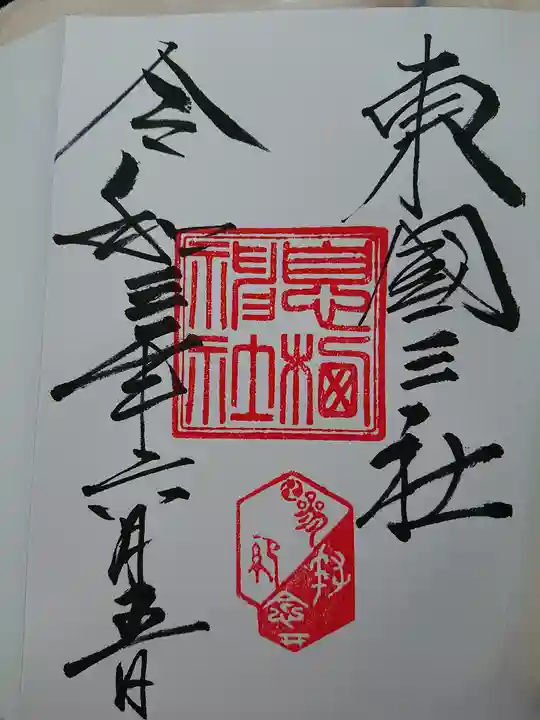 東國三社
息栖
神社
令和三年六月五日